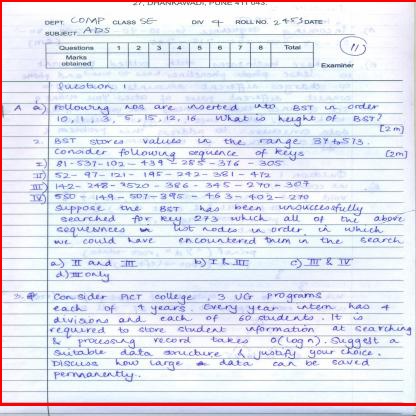 27, DHANKAWADI, PUNE 411 043.
DEPT. COMP CLASS SE DIV 4 ROLL NO. 2453 DATE
SUBJECT ADS
Questions 1 2 3 4 5 6 7 8 Total
Marks obtained
11
Examiner
Question 1
A a) Following nos are inserted into BST in order
10, 1, 3, 5, 15, 12, 16 What is height of BST?
[2m]
2. BST stores values in the range 37 to 573.
Consider following sequence of keys (2m)
I) 81-537-102-439-285-376-305
II) 52-97-121-195-242-381-472
III) 142-248-3520-386-345-270-307
IV) 550-149-507-395-463-402-270
Suppose the BST has been unsuccessfully
searched for key 273 which all of the above
sequences list nodes in order, in which
we could have encountered them in the search
a) II and III b) I & III c) III & IV
d) III only
3. Consider PICT college, 3 UG programs
each of 4 years. Every year intern has 4
divisions and each of 60 students. It is
required to store student information at searching
& processing record takes O(log n). Suggest a
suitable data structure & justify your choice.
Discuss how large data can be saved
permanently.